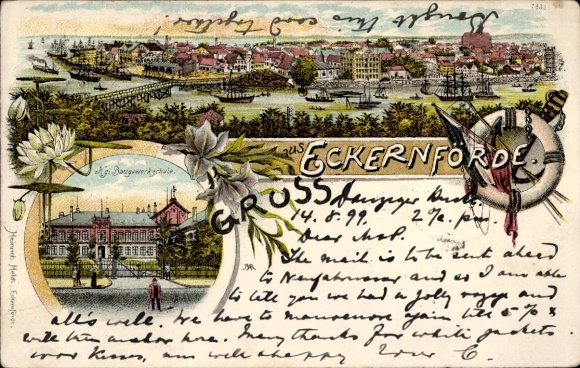 Bought this card together!
7831
Kgl. Baugewerkschule.
GRUSS aus ECKERNFÖRDE.
Heinrich Heldt, Eckernförde.
Danziger
14.8.99. 2
Dear
The mail is to be sent ahead
to Neufahrwasser and so I am able
to tell you we had a jolly voyage and
all's well. We have to manoeuvre again till
will then anchor here. Many thanks for white jackets
am well & happy Your C.